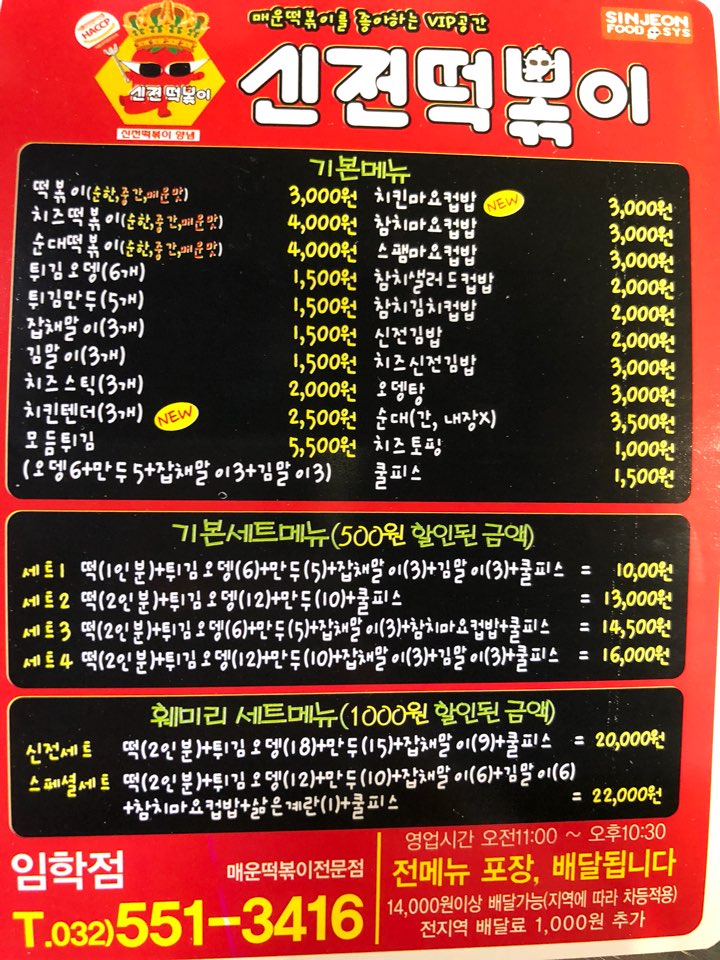 HACCP
매운떡볶이를 좋아하는 VIP공간
SINJEON
FOOD SYS
신전떡볶이
신전떡볶이 양념
신전떡볶이
기본메뉴
떡볶이(순한,중간,매운맛) 3,000원
치즈떡볶이(순한,중간,매운맛) 4,000원
순대떡볶이(순한,중간,매운맛) 4,000원
튀김오뎅(6개) 1,500원
튀김만두(5개) 1,500원
잡채말이(3개) 1,500원
김말이(3개) 1,500원
치즈스틱(3개) 2,000원
치킨텐더(3개) NEW 2,500원
모듬튀김 5,500원
(오뎅6+만두5+잡채말이3+김말이3)
치킨마요컵밥 NEW 3,000원
참치마요컵밥 3,000원
스팸마요컵밥 3,000원
참치샐러드컵밥 2,000원
참치김치컵밥 2,000원
신전김밥 2,000원
치즈신전김밥 3,000원
오뎅탕 3,000원
순대(간, 내장X) 3,500원
치즈토핑 1,000원
쿨피스 1,500원
기본세트메뉴(500원 할인된 금액)
세트1 떡(1인분)+튀김오뎅(6)+만두(5)+잡채말이(3)+김말이(3)+쿨피스 = 10,00원
세트2 떡(2인분)+튀김오뎅(12)+만두(10)+쿨피스 = 13,000원
세트3 떡(2인분)+튀김오뎅(6)+만두(5)+잡채말이(3)+참치마요컵밥+쿨피스 = 14,500원
세트4 떡(2인분)+튀김오뎅(12)+만두(10)+잡채말이(3)+김말이(3)+쿨피스 = 16,000원
훼미리 세트메뉴(1000원 할인된 금액)
신전세트 떡(2인분)+튀김오뎅(18)+만두(15)+잡채말이(9)+쿨피스 = 20,000원
스페셜세트 떡(2인분)+튀김오뎅(12)+만두(10)+잡채말이(6)+김말이(6)
+참치마요컵밥+삶은계란(1)+쿨피스 = 22,000원
임학점 매운떡볶이전문점
T.032)551-3416
영업시간 오전11:00 ~ 오후10:30
전메뉴 포장, 배달됩니다
14,000원이상 배달가능(지역에 따라 차등적용)
전지역 배달료 1,000원 추가